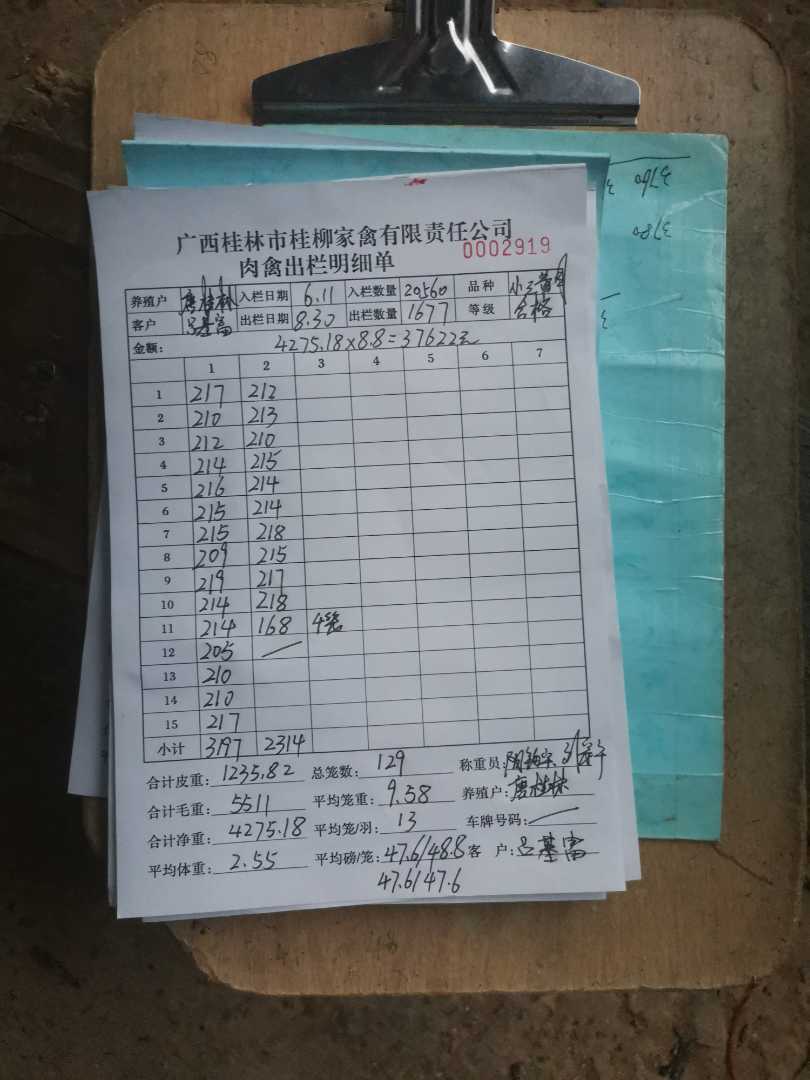 广西桂林市桂柳家禽有限责任公司
肉禽出栏明细单 0002919
养殖户 唐桂林 入栏日期 6.11 入栏数量 20560 品种
客户 吕基富 出栏日期 8.30 出栏数量 1677 等级 合格
金额: 4275.18×8.8=37622元
1 2 3 4 5 6 7
1 217 212
2 210 213
3 212 210
4 214 215
5 216 214
6 215 214
7 215 218
8 209 215
9 219 217
10 214 218
11 214 168 4笼
12 205 /
13 210
14 210
15 217
小计 3197 2314
合计皮重: 1235.82 总笼数: 129 称重员:
合计毛重: 5511 平均笼重: 9.58 养殖户: 唐桂林
合计净重: 4275.18 平均笼/羽: 13 车牌号码: /
平均体重: 2.55 平均磅/笼: 47.6/48.8 客 户: 吕基富
47.6/47.6
3760
3780